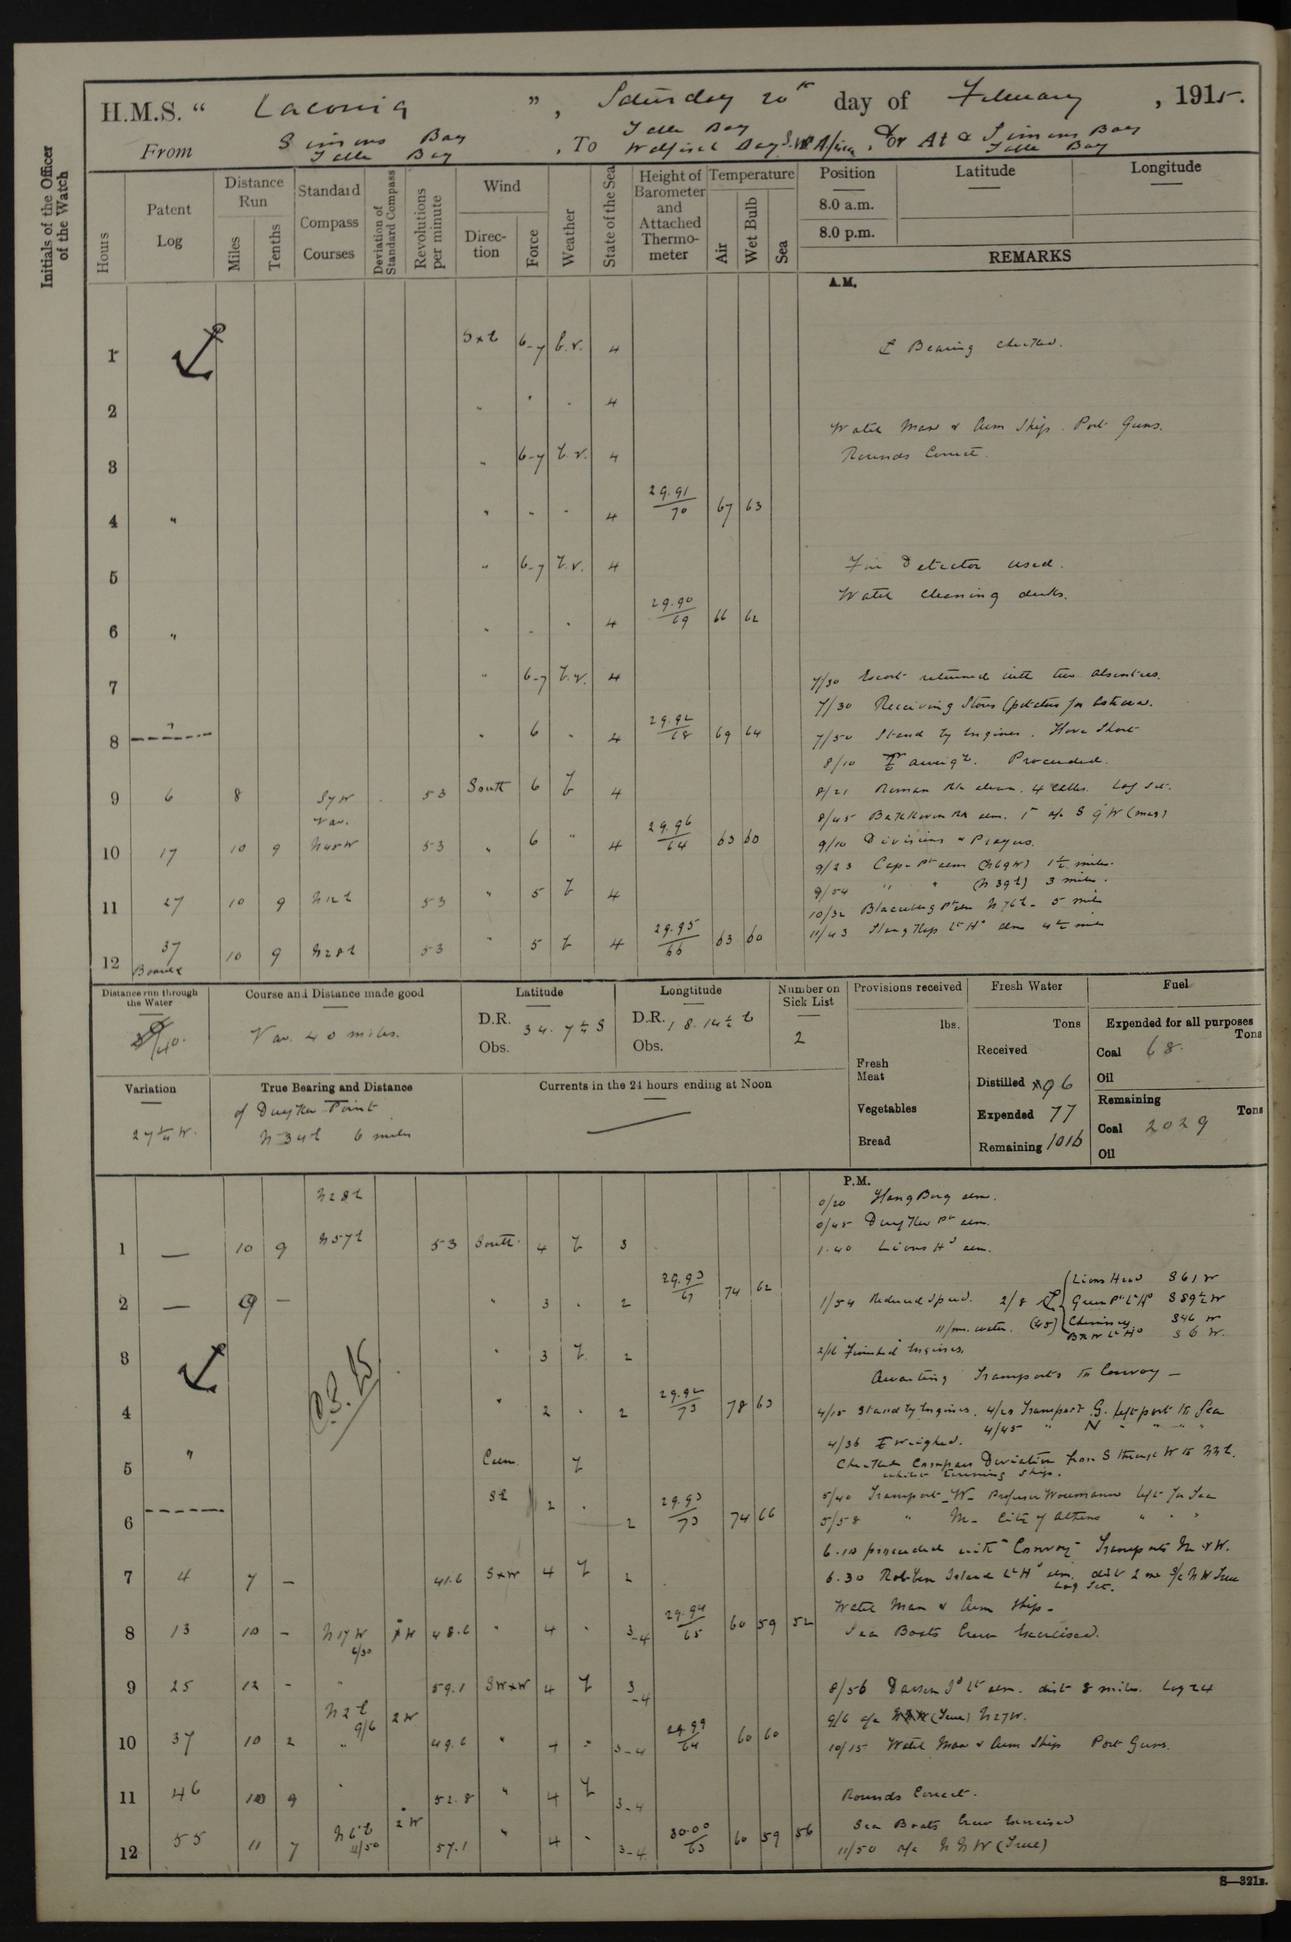 H.M.S. " Laconia ", Saturday 20th day of February, 1915.
From Simons Bay Table Bay, To Table Bay Walfisch Bay S.W. Africa, Or At Simons Bay Table Bay
Initials of the Officer of the Watch
Hours
Patent Log
Distance Run
Miles
Tenths
Standard Compass Courses
Deviation of Standard Compass
Revolutions per minute
Wind
Direction
Force
Weather
State of the Sea
Height of Barometer and Attached Thermometer
Temperature
Air
Wet Bulb
Sea
Position
8.0 a.m.
8.0 p.m.
Latitude
Longitude
REMARKS
A.M.
1 SxE 6-7 b.v. 4 Bearing checked.
2 " " " 4
Watch Man & Arm Ship. Port Guns.
3 " 6-7 b.v. 4 Rounds Correct.
4 " " - - 4 29.91/70 67 63
5 " 6-7 b.v. 4 Fire Detector used.
Watch cleaning decks.
6 " " - " 4 29.90/69 66 62
7 " 6-7 b.v. 4 7/30 Escort returned with two absentees.
7/30 Receiving Stores
8 " " 6 " 4 29.92/68 69 64 7/50 Stand by Engines. Hove Short
8/10 aweigh. Proceeded.
9 6 8 S7W 53 South 6 b 4 8/21 Roman Rk abeam. 4 cables. Log set.
Var. 8/45
10 17 10 9 N45W 53 " 6 " 4 29.96/64 63 60 9/10 Divisions & Prayers.
9/23 Cape Pt abm (N69W) 1½ miles.
9/54 " " (N39E) 3 miles.
11 27 10 9 N12E 53 " 5 b 4 10/32 N76E 5 miles
12 37 10 9 N28E 53 " 5 b 4 29.95/66 63 60 11/43 Slangkop Lt Ho abm 4½ miles
Distance run through the Water
40.
Course and Distance made good
Var. 40 miles.
Latitude
D.R. 34.7½ S
Obs.
Longtitude
D.R. 18.14½ E
Obs.
Number on Sick List
2
Provisions received
lbs.
Fresh Meat
Vegetables
Bread
Fresh Water
Tons
Received
Distilled 96
Expended 77
Remaining 1016
Fuel
Expended for all purposes
Tons
Coal 68.
Oil
Remaining
Tons
Coal 2029
Oil
Variation
27¼ W.
True Bearing and Distance
of Duyker Point
N34E 6 miles
Currents in the 24 hours ending at Noon
P.M.
N28E 0/20 Hang Berg abm.
0/45 Duyker Pt abm.
1 — 10 9 N57E 53 South. 4 b 3 1.40 Lions Hd abm.
2 — 9 — " 3 . 2 29.93/67 74 62 1/54 Reduced Speed. 2/8 Lions Head S61W
Green Pt Lt Ho S89½W
11 fms. water. (45) Chimney S46W
S6W.
3 " 3 b 2 2/16 Finished Engines.
Awaiting Transports to Convoy —
4 " 2 . 2 29.92/73 78 63 4/15 Stand by Engines. 4/20 Transport G. left port to Sea
4/45 " N " " " "
4/36 weighed.
5 " Calm b Checked Compass Deviation from S through W to NNE.
whilst turning ship.
SE 5/40 Transport W Professor Woermann left for Sea
6 2 . 2 29.93/73 74 66 5/58 " M City of Athens " " "
6.10 proceeded with Convoy Transports M & W.
7 4 7 — 41.6 SxW 4 b 2 6.30 Robben Island Lt Ho abm. dist 2 ms S/c NW True
Log Set.
Watch Man & Arm Ship.
8 13 10 - N17W 6/30 48.6 " 4 . 3-4 29.94/65 60 59 52 Sea Boats Crew Exercised.
9 25 12 - " 59.1 SWxW 4 b 3-4 8/56 Dassen Id Lt abm. dist 8 miles. Log 24
N2E 9/6 2W 9/6 a/c (True) N27W.
10 37 10 2 " 49.6 " 4 " 3-4 29.99/64 60 60 10/15 Watch Man & Arm Ship Port Guns.
11 46 10 9 " 52.8 " 4 b 3-4 Rounds Correct.
Sea Boats Crew Exercised
12 55 11 7 N6E 11/50 2W 57.1 " 4 " 3-4 30.00/63 60 59 56 11/50 a/c NNW (True)
S—321b.